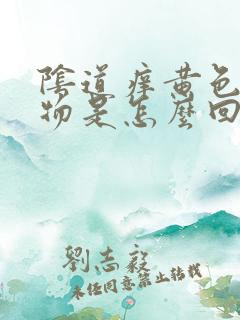 陰道癢黃色
物是怎麼回
劉志毅
未經同意禁止轉載